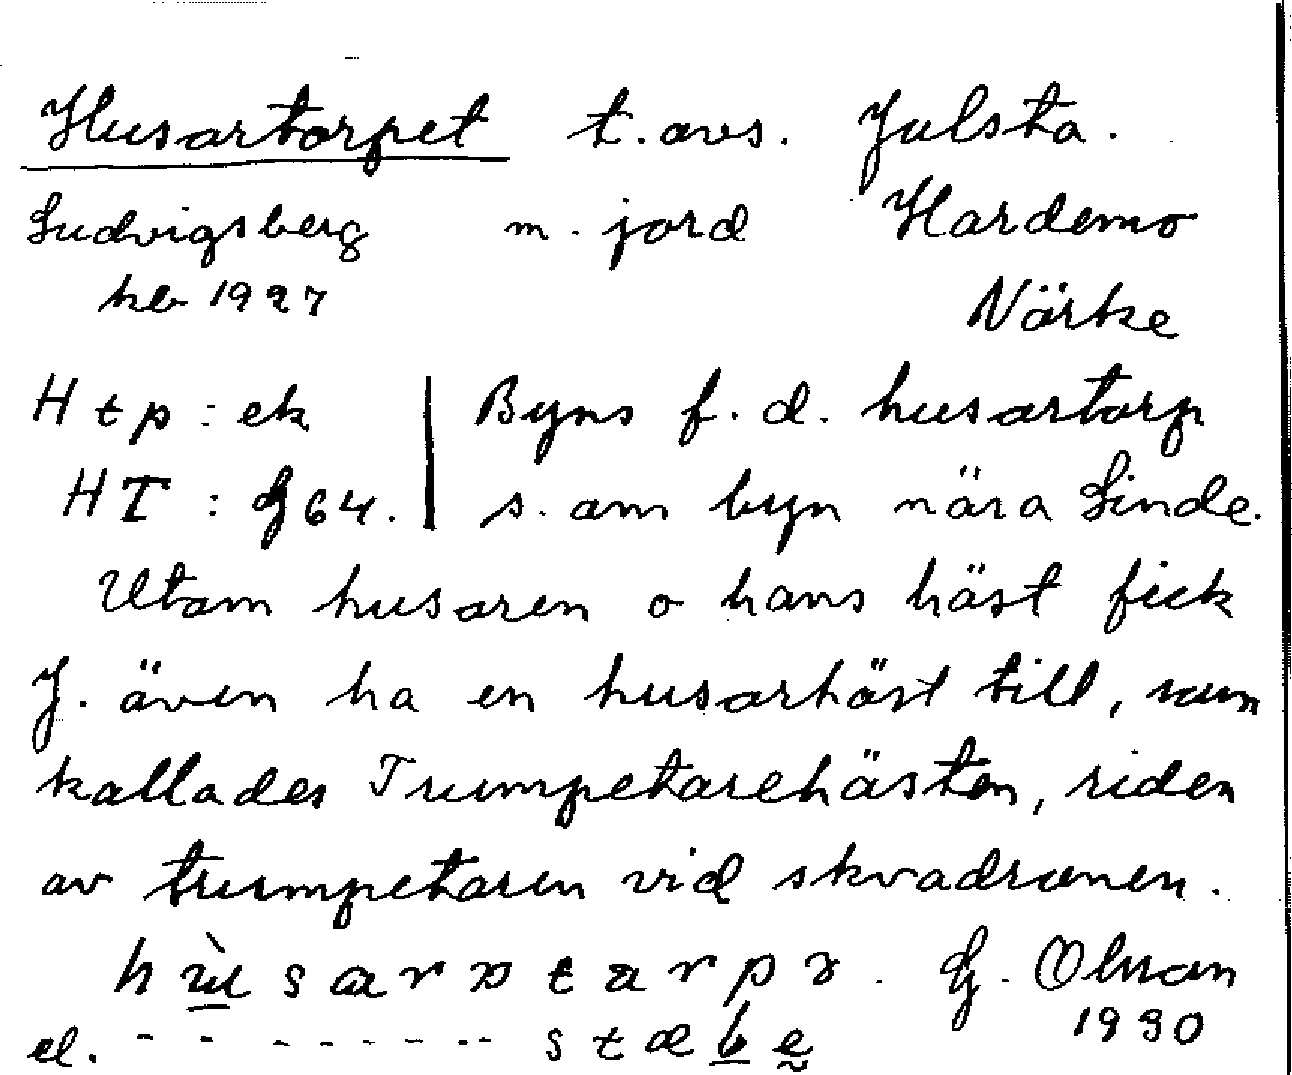 Husartorpet t. avs. Julsta.
Ludvigsberg m. jord Hardemo
hb 1927 Närke
H t p : ek Byns f. d. husartorp
HT : G64. s. om byn nära Linde.
Utom husaren o hans häst fick
J. även ha en husarhäst till, som
kallades Trumpetarehästen, riden
av trumpetaren vid skvadronen.
G. Olsson
1930
el. - - - - - - - -